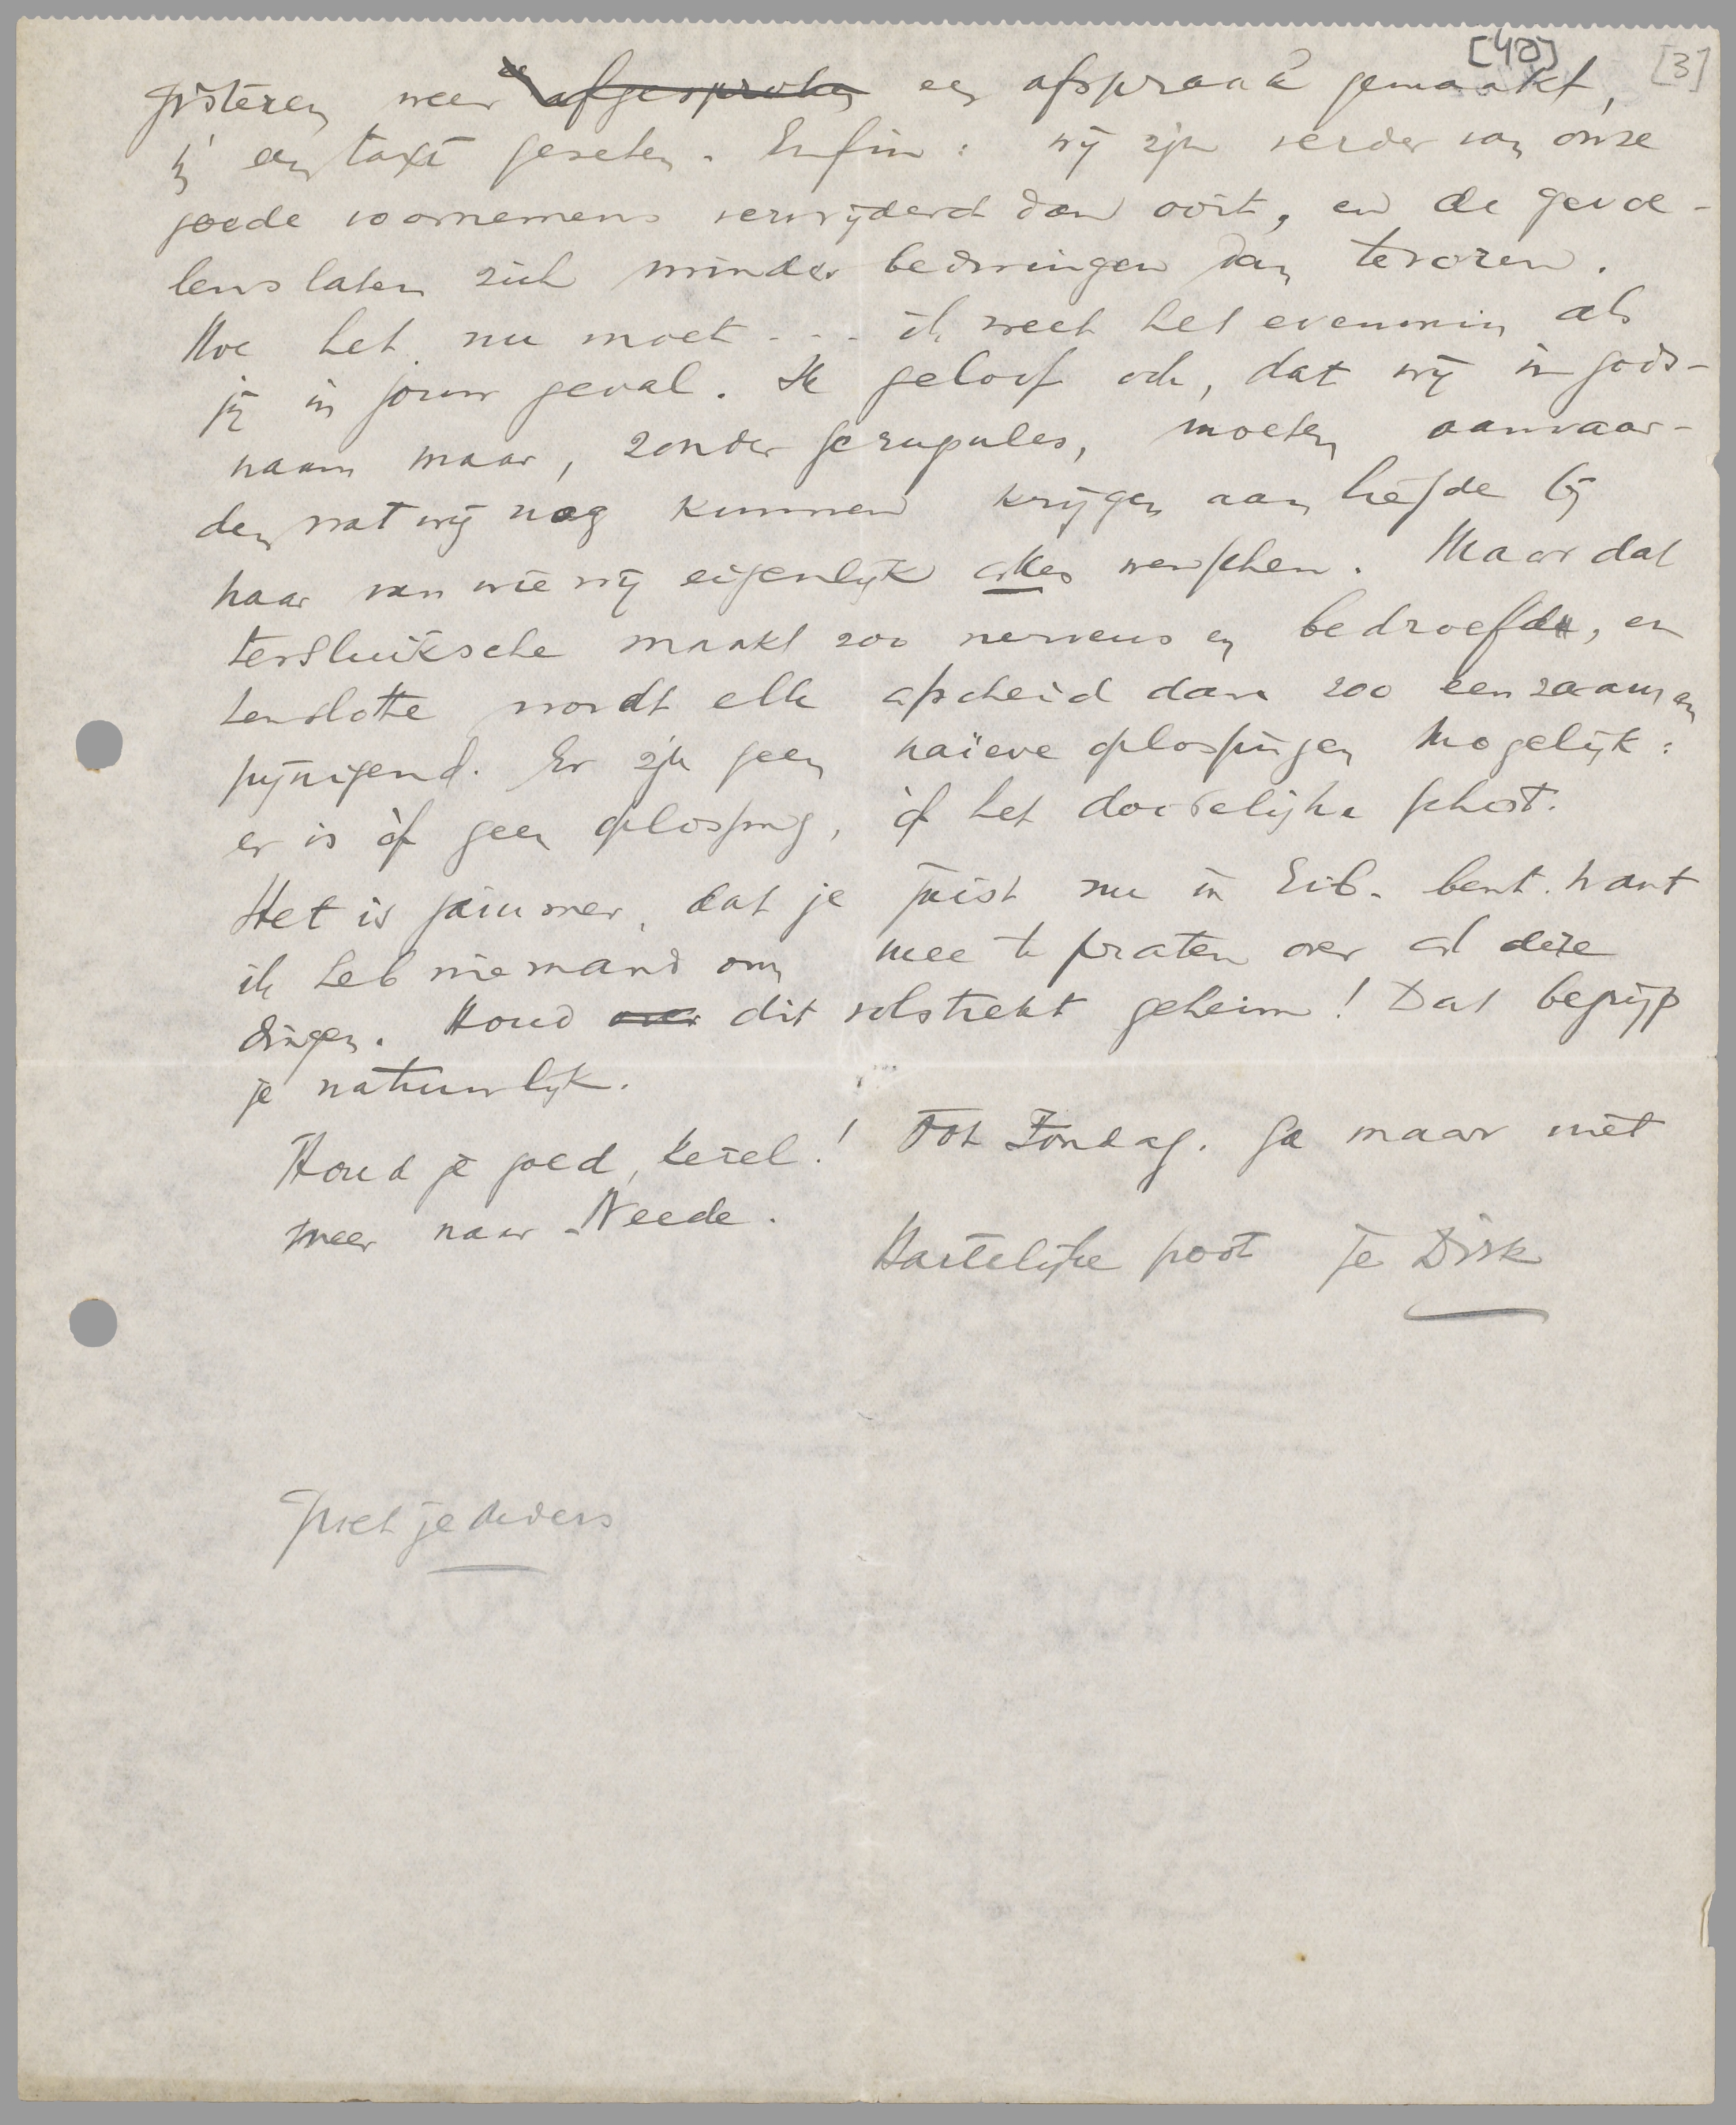 [40] [3]
gisteren weer afgesproken een afspraak gemaakt,
in een taxi gezeten. Enfin: wij zijn verder van onze
goede voornemens verwijderd dan ooit, en de gevoe-
lens laten zich minder bedwingen dan tevoren.
Hoe het nu moet . . . ik weet het evenmin als
jij in jouw geval. Ik geloof ook, dat wij in gods-
naam maar, zonder scrupules, moeten aanvaar-
den wat wij nog kunnen krijgen aan liefde bij
haar van wie wij eigenlijk alles wenschen. Maar dat
tersluiksche maakt zoo nerveus en bedroefd, en
tenslotte wordt elk afscheid dan zoo eenzaam en
pijnigend. Er zijn geen naïeve oplossingen mogelijk:
er is òf geen oplossing, òf het doodelijke schot.
Het is jammer, dat je juist nu in Eib. bent. want
ik heb niemand om mee te praten over al deze
dingen. Houd over dit volstrekt geheim! Dat begrijp
je natuurlijk.
Houd je goed, kerel! Tot Zondag. Ga maar niet
meer naar Neede.
Hartelijke poot je Dirk
Groet je ouders